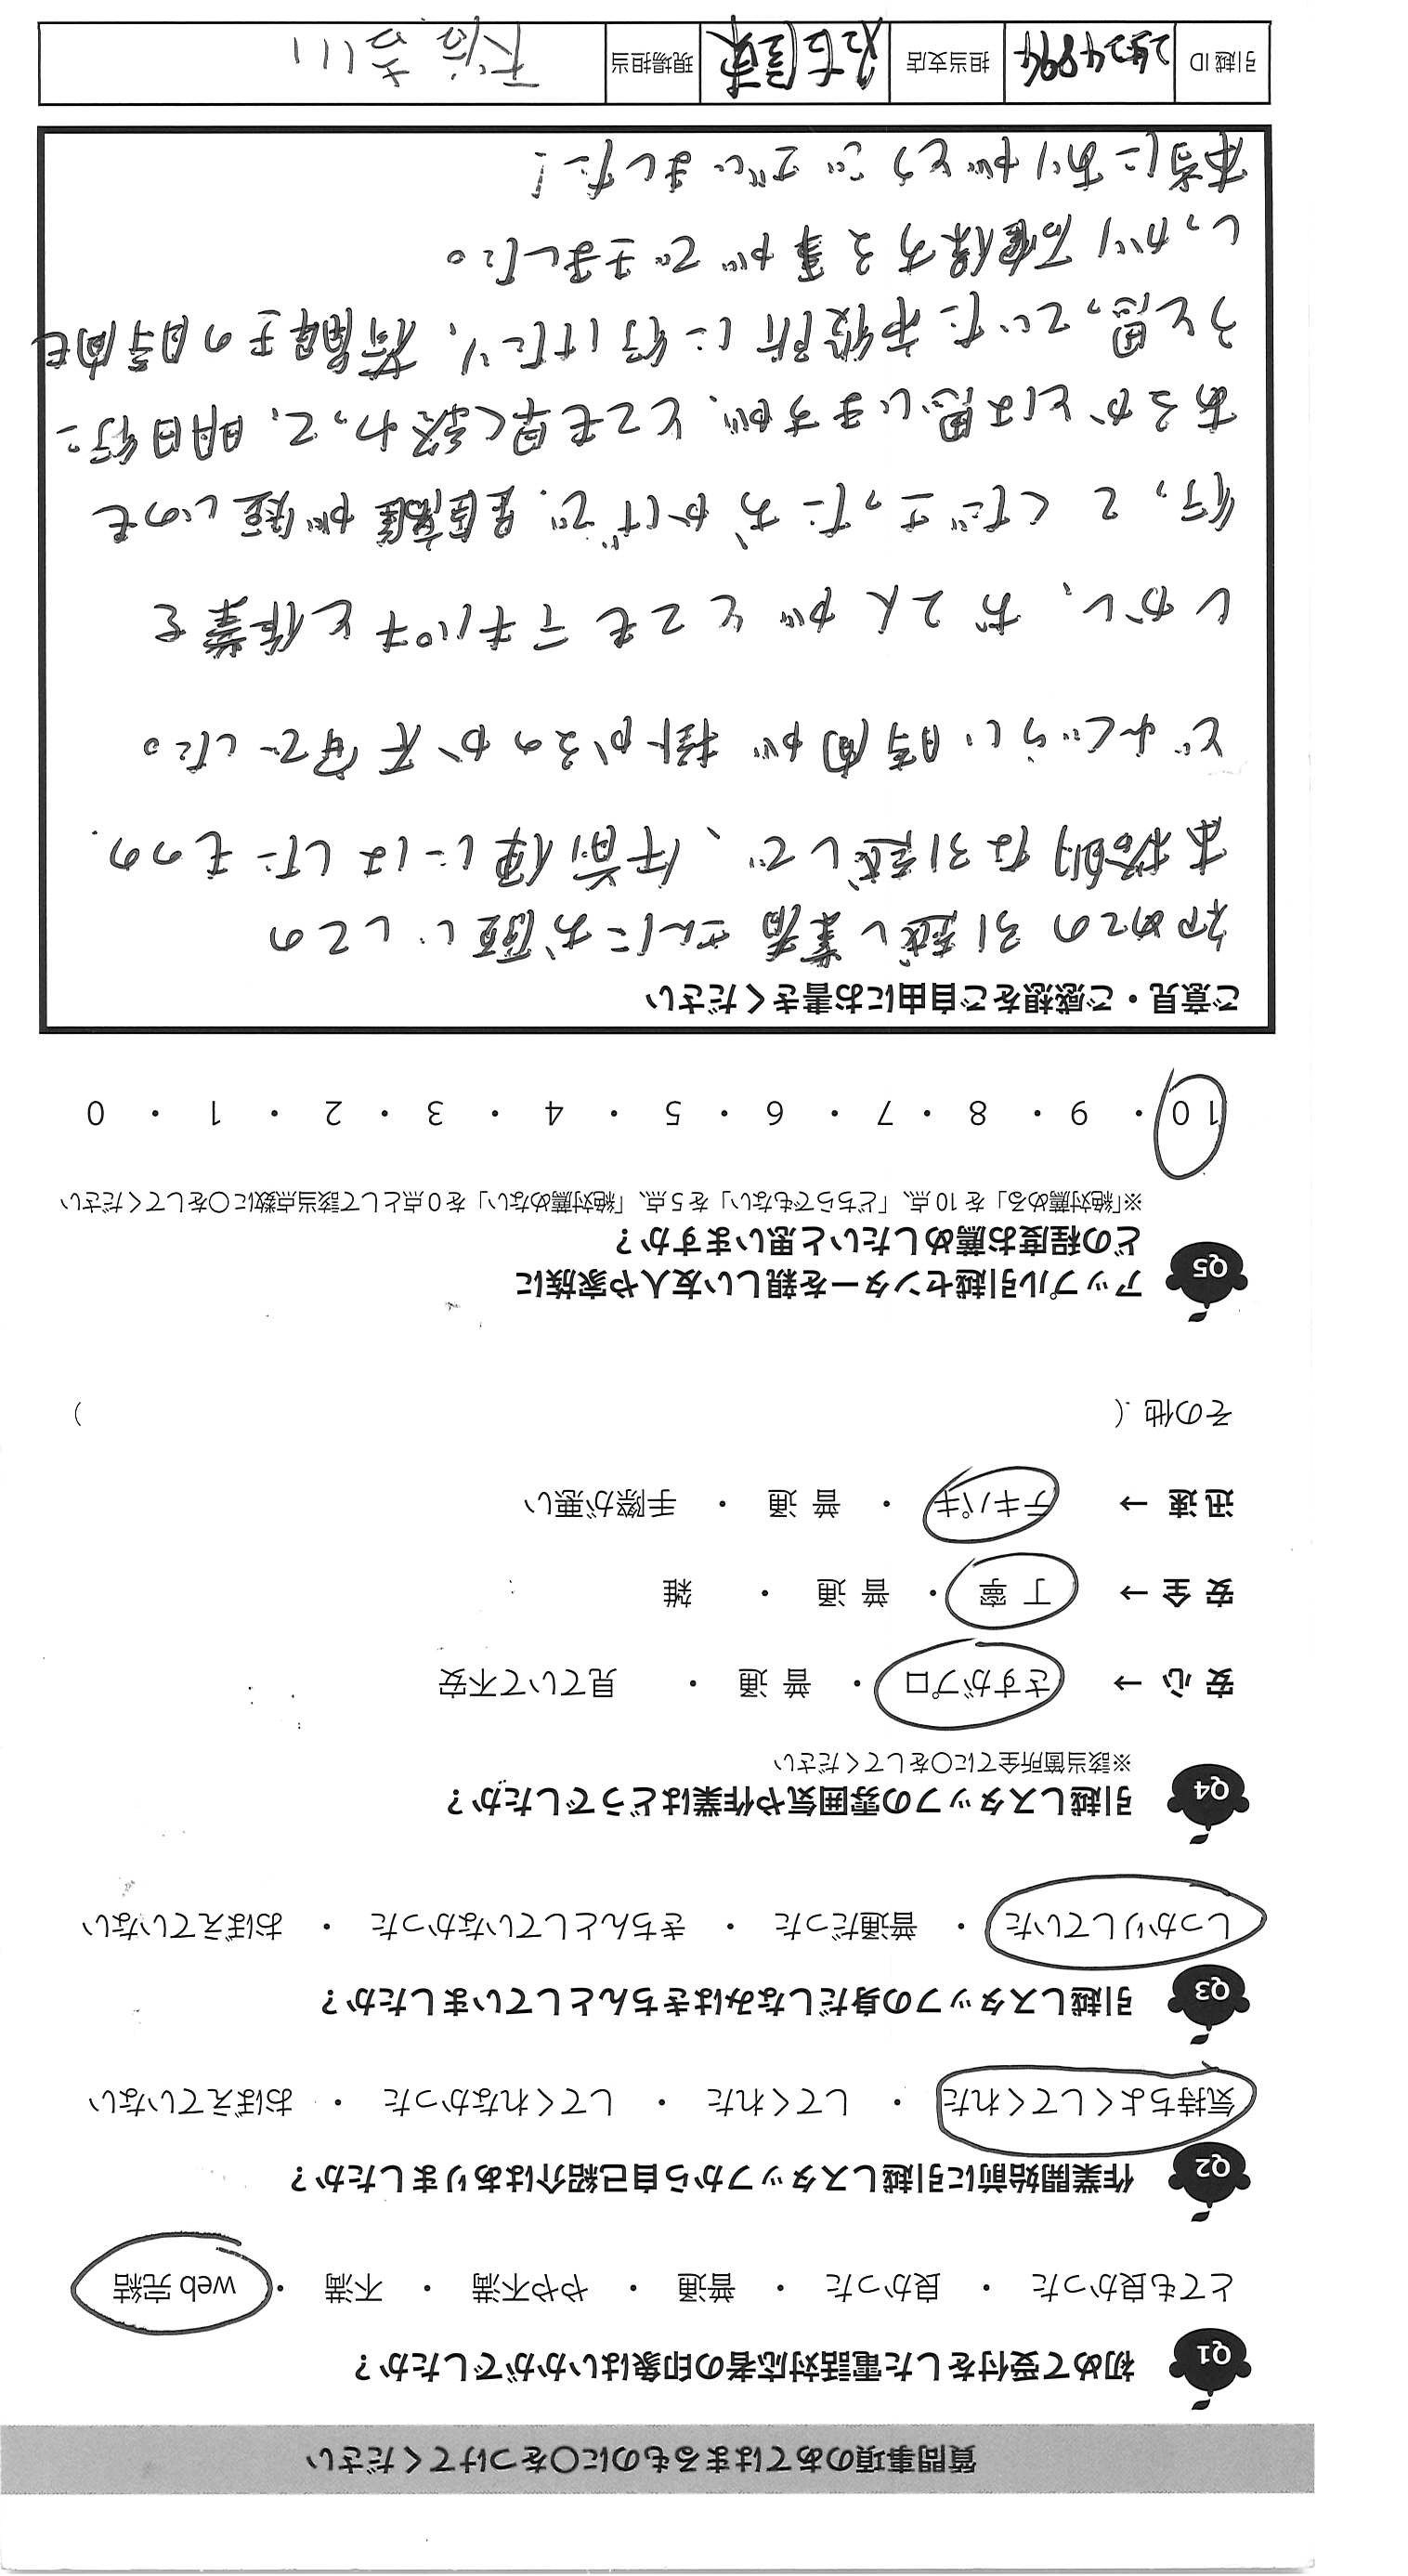 質問事項のあてはまるものに〇をつけてください
Q1 初めて受付をした電話対応者の印象はいかがでしたか？
とても良かった ・ 良かった ・ 普通 ・ やや不満 ・ 不満 ・ web 完結
Q2 作業開始前に引越しスタッフから自己紹介はありましたか？
気持ちよくしてくれた ・ してくれた ・ してくれなかった ・ おぼえていない
Q3 引越しスタッフの身だしなみはきちんとしていましたか？
しっかりしていた ・ 普通だった ・ きちんとしていなかった ・ おぼえていない
Q4 引越しスタッフの雰囲気や作業はどうでしたか？
※該当箇所全てに〇をしてください
安 心 → さすがプロ ・ 普 通 ・ 見ていて不安
安 全 → 丁 寧 ・ 普 通 ・ 雑
迅 速 → テキパキ ・ 普 通 ・ 手際が悪い
その他 ( )
Q5 アップル引越センターを親しい友人や家族に
どの程度お薦めしたいと思いますか？
※「絶対薦める」を 10 点、「どちらでもない」を 5 点、「絶対薦めない」を 0 点として該当点数に〇をしてください
10 ・ 9 ・ 8 ・ 7 ・ 6 ・ 5 ・ 4 ・ 3 ・ 2 ・ 1 ・ 0
ご意見・ご感想をご自由にお書きください
初めての引越し業者さんにお願いしての
本格的な引越しで、午前便にはしたものの、
どれくらい時間が掛かるのか不安でした。
しかし、お2人がとてもテキパキと作業を
行ってくださったおかげで、距離が短いのも
あるかとは思いますが、とても早く終わって、明日行こ
うと思っていた市役所に行けたり、荷解きの時間も
しっかり確保する事ができました。
本当にありがとうございました！
引越 ID 担当支店 名古屋東 現場担当